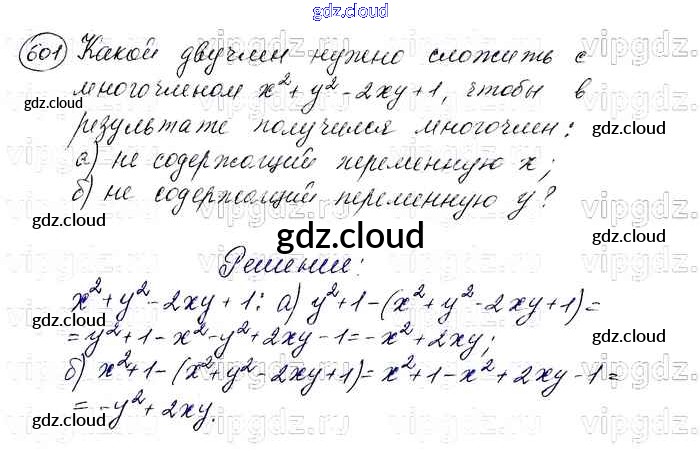 gdz.cloud
601 Какой двучлен нужно сложить с
многочленом x²+y²-2xy+1, чтобы в
gdz.cloud gdz.cloud
результате получился многочлен:
gdz.cloud
а) не содержащий переменную x;
б) не содержащий переменную y?
gdz.cloud gdz.cloud
gdz.cloud
Решение:
x²+y²-2xy+1: а) y²+1-(x²+y²-2xy+1)=
gdz.cloud
=y²+1-x²-y²+2xy-1=-x²+2xy;
gdz.cloud
б) x²+1-(x²+y²-2xy+1)=x²+1-x²+2xy-1=
=-y²+2xy.
gdz.cloud gdz.cloud